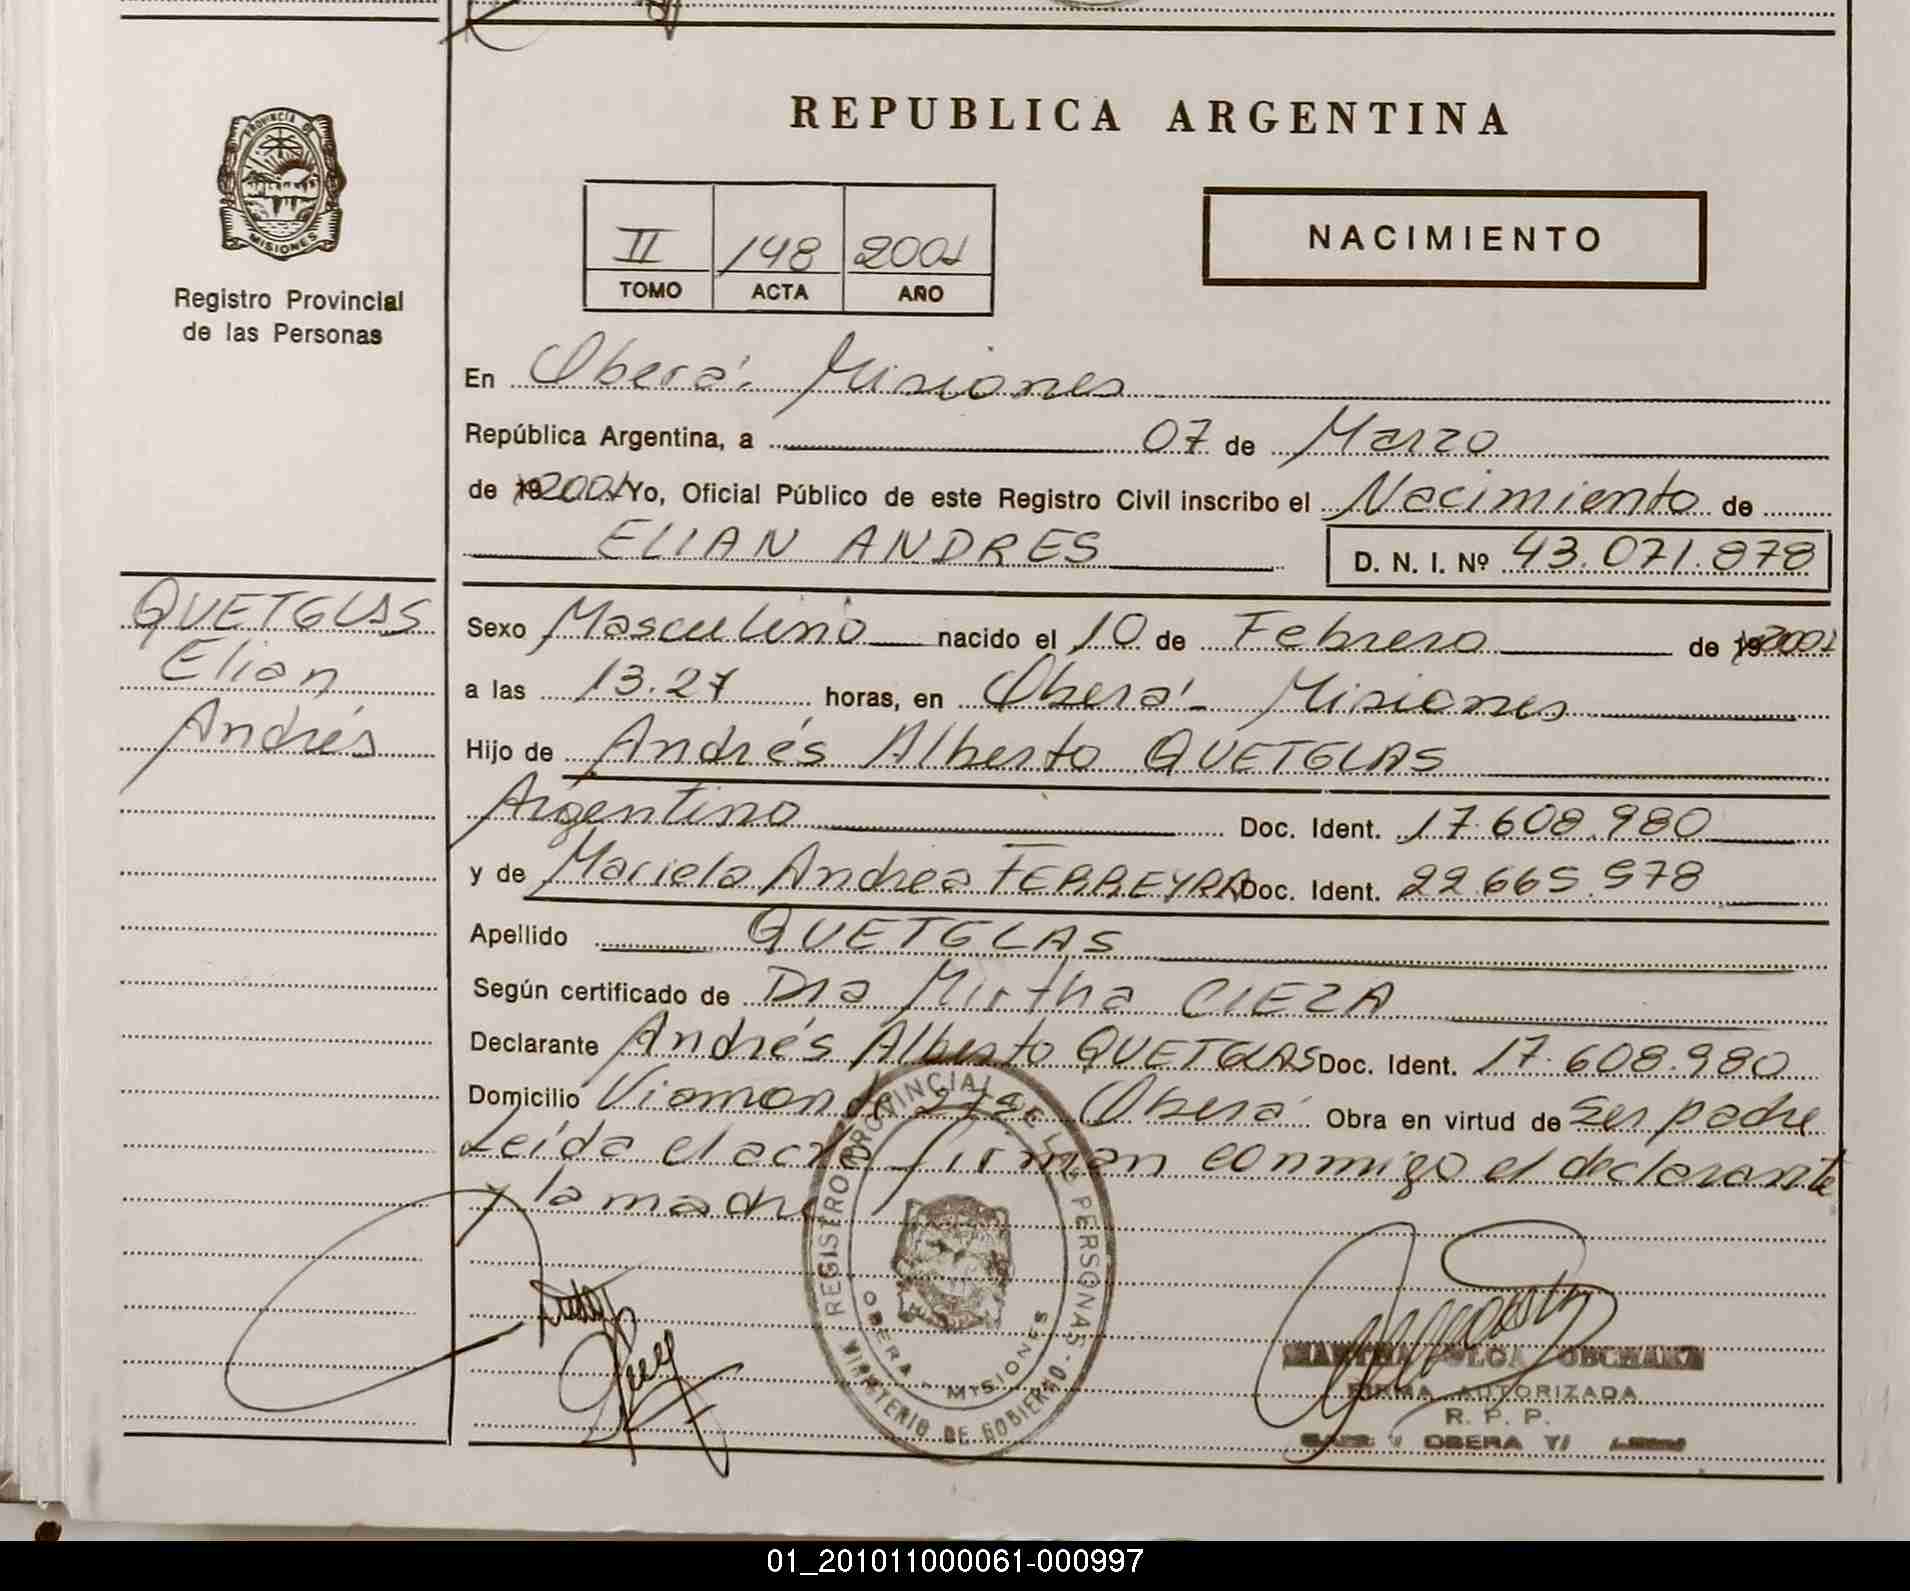 REPUBLICA ARGENTINA
PROVINCIA DE
MISIONES
Registro Provincial
de las Personas
II 148 2001
TOMO ACTA AÑO
NACIMIENTO
En Oberá. Misiones
República Argentina, a 07 de Marzo
de 19 2001 Yo, Oficial Público de este Registro Civil inscribo el Nacimiento de
ELIAN ANDRES
D. N. I. Nº 43.071.878
QUETGLAS
Elian
Andrés
Sexo Masculino nacido el 10 de Febrero de 19 2001
a las 13.27 horas, en Oberá - Misiones
Hijo de Andrés Alberto QUETGLAS
Argentino Doc. Ident. 17.608.980
y de Mariela Andrea FERREYRA Doc. Ident. 22.665.978
Apellido QUETGLAS
Según certificado de Dra Mirtha CIEZA
Declarante Andrés Alberto QUETGLAS Doc. Ident. 17.608.980
Domicilio Viamonte Oberá Obra en virtud de ser padre
Leída el acta firman conmigo el declarante
y la madre
REGISTRO PROVINCIAL DE LAS PERSONAS -
OBERA - MISIONES
MINISTERIO DE GOBIERNO -
FIRMA AUTORIZADA
R. P. P.
OBERA
01_201011000061-000997